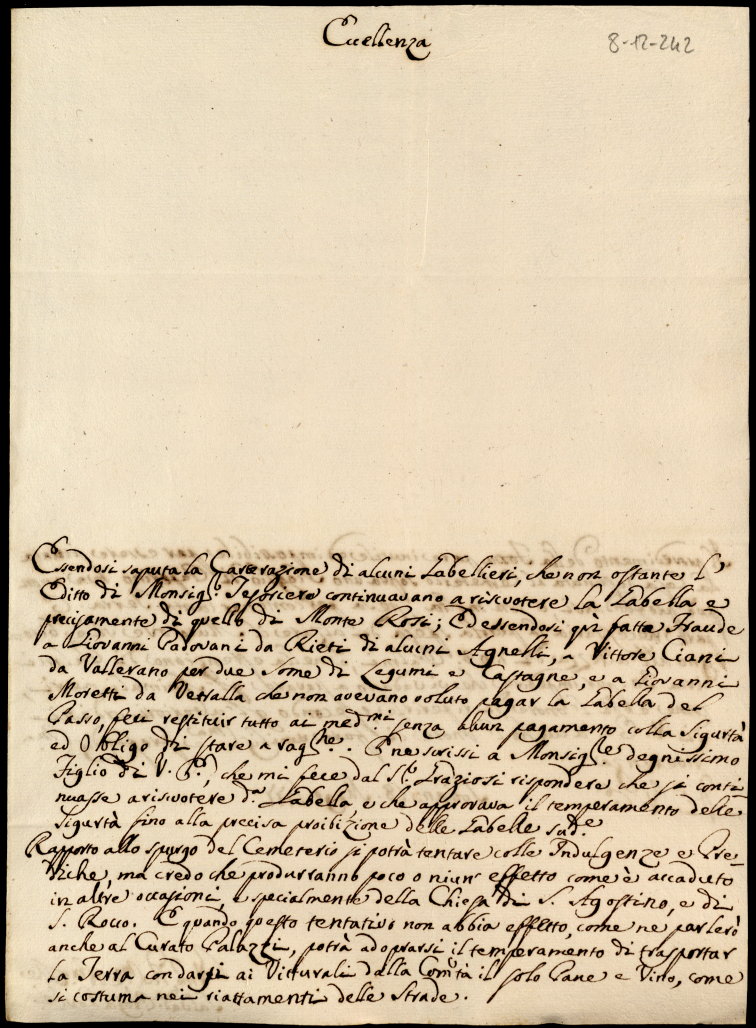 Eccellenza
8-12-242
Essendosi saputa la Gareggiazione di alcuni Gabellieri, che non ostante l'
Editto di Monsig.r Tesoriere continuavano a riscuotere la Gabella e
precisamente di quello di Monte Rosi; Ed essendosi quì fatta Fraude
a Giovanni Padovani da Rieti di alcuni Agnelli, a Vittore Ciani
da Vallerano per due Some di Legumi e Castagne, e a Giovanni
Moretti da Vetralla che non avevano voluto pagar la Gabella del
Passo, feci restituir tutto ai med.mi senza alcun pagamento colla Sigurtà
ed Obligo di stare a rag.ne. E ne scrissi a Monsig.re degnissimo
Figlio di V. E., che mi fece dal S.r Graziosi rispondere che si conti
nuasse a riscuotere d.a Gabella, e che approvava il temperamento delle
Sigurtà fino alla precisa proibizione delle Gabelle sud.e
Rapporto allo spurgo del Cemeterio si potrà tentare colle Indulgenze e Pre-
diche, ma credo che produrranno poco o niun effetto come è accaduto
in altre occasioni, e specialmente della Chiesa di S. Agostino, e di
S. Rocco. E quando questo tentativo non abbia effetto, come ne parlerò
anche al Curato Palazzi, potrà adoprarsi il temperamento di trasportar
la Terra con darsi ai Vitturali dalla Com.tà il solo Pane e Vino, come
si costuma nei riattamenti delle Strade.